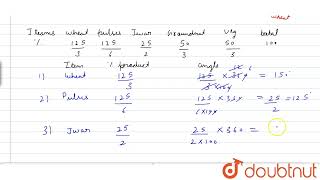 wheat
Items wheat pulses Jwar Groundnut veg total
% 125/3 125/6 25/2 50/3 50/3 100
Item % product angle
1) Wheat 125/3 125/3 × 360/100 = 150
2) Pulses 125/6 125/6×100 × 360 = 25/2 = 125
3) Jwar 25/2 25/2×100 × 360 =
doubtnut